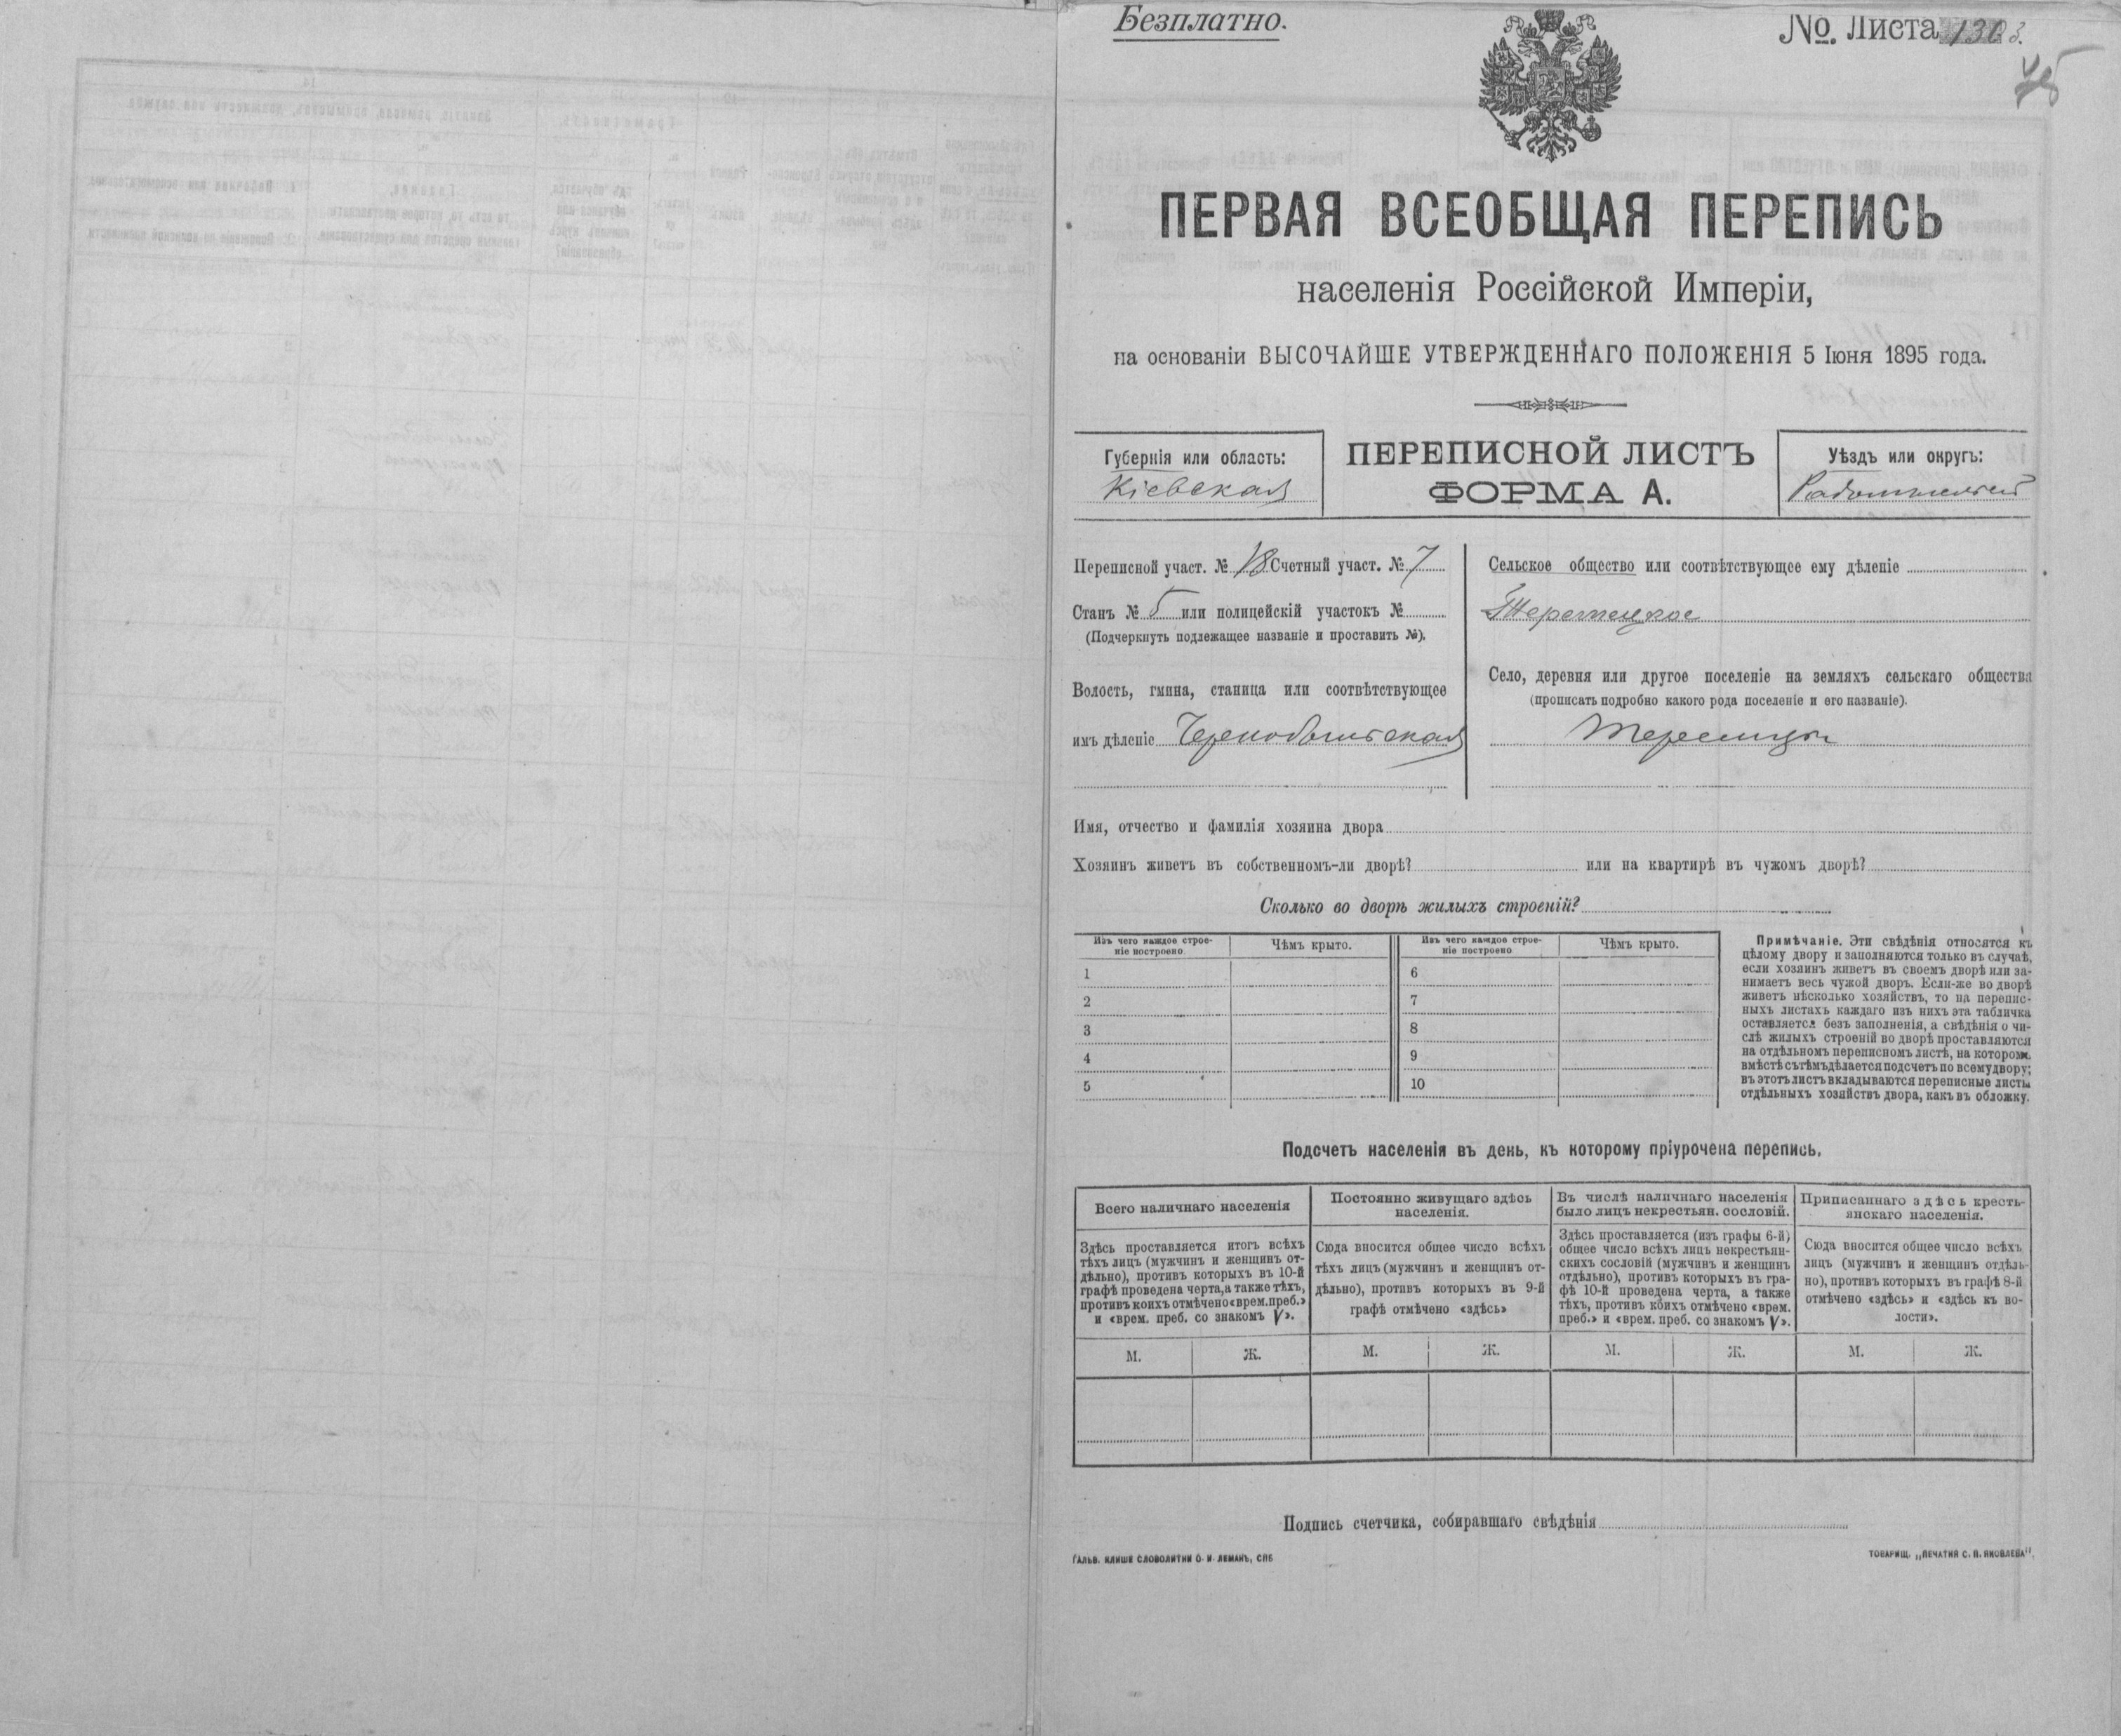 Безплатно.
No. Листа
ПЕРВАЯ ВСЕОБЩАЯ ПЕРЕПИСЬ
населенія Россійской Имперіи,
на основаніи ВЫСОЧАЙШЕ УТВЕРЖДЕННАГО ПОЛОЖЕНІЯ 5 Іюня 1895 года.
Губернія или область:
Кіевская
ПЕРЕПИСНОЙ ЛИСТЪ
ФОРМА А.
Уѣздъ или округъ:
Переписной участ. № 18 Счетный участ. № 7
Станъ № 5 или полицейскій участокъ №
(Подчеркнуть подлежащее названіе и проставить №).
Волость, гмина, станица или соотвѣтствующее
имъ дѣленіе Чернобыльская
Сельское общество или соотвѣтствующее ему дѣленіе
Теремецкое
Село, деревня или другое поселеніе на земляхъ сельскаго общества
(прописать подробно какого рода поселеніе и его названіе).
Теремцы
Имя, отчество и фамилія хозяина двора
Хозяинъ живетъ въ собственномъ-ли дворѣ? или на квартирѣ въ чужомъ дворѣ?
Сколько во дворѣ жилыхъ строеній?
Изъ чего каждое строе-
ніе построено
Чѣмъ крыто.
1
2
3
4
5
Изъ чего каждое строе-
ніе построено
Чѣмъ крыто.
6
7
8
9
10
Примѣчаніе. Эти свѣдѣнія относятся къ
цѣлому двору и заполняются только въ случаѣ,
если хозяинъ живетъ въ своемъ дворѣ или за-
нимаетъ весь чужой дворъ. Если-же во дворѣ
живетъ нѣсколько хозяйствъ, то на перепис-
ныхъ листахъ каждаго изъ нихъ эта табличка
оставляется безъ заполненія, а свѣдѣнія о чи-
слѣ жилыхъ строеній во дворѣ проставляются
на отдѣльномъ переписномъ листѣ, на которомъ
вмѣстѣ съ тѣмъ дѣлается подсчетъ по всему двору;
въ этотъ листъ вкладываются переписные листы
отдѣльныхъ хозяйствъ двора, какъ въ обложку.
Подсчетъ населенія въ день, къ которому пріурочена перепись.
Всего наличнаго населенія
Здѣсь проставляется итогъ всѣхъ
тѣхъ лицъ (мужчинъ и женщинъ от-
дѣльно), противъ которыхъ въ 10-й
графѣ проведена черта, а также тѣхъ,
противъ коихъ отмѣчено «врем. преб.»
и «врем. преб. со знакомъ V».
М. Ж.
Постоянно живущаго здѣсь
населенія.
Сюда вносится общее число всѣхъ
тѣхъ лицъ (мужчинъ и женщинъ от-
дѣльно), противъ которыхъ въ 9-й
графѣ отмѣчено «здѣсь»
М. Ж.
Въ числѣ наличнаго населенія
было лицъ некрестьян. сословій.
Здѣсь проставляется (изъ графы 6-й)
общее число всѣхъ лицъ некрестьян-
скихъ сословій (мужчинъ и женщинъ
отдѣльно), противъ которыхъ въ гра-
фѣ 10-й проведена черта, а также
тѣхъ, противъ коихъ отмѣчено «врем.
преб.» и «врем. преб. со знакомъ V».
М. Ж.
Приписаннаго здѣсь кресть-
янскаго населенія.
Сюда вносится общее число всѣхъ
лицъ (мужчинъ и женщинъ отдѣль-
но), противъ которыхъ въ графѣ 8-й
отмѣчено «здѣсь» и «здѣсь къ во-
лости».
М. Ж.
Подпись счетчика, собиравшаго свѣдѣнія
ГАЛЬВ. КЛИШЕ СЛОВОЛИТНИ О. И. ЛЕМАНЪ, СПБ
ТОВАРИЩ. „ПЕЧАТНЯ С. П. ЯКОВЛЕВА".